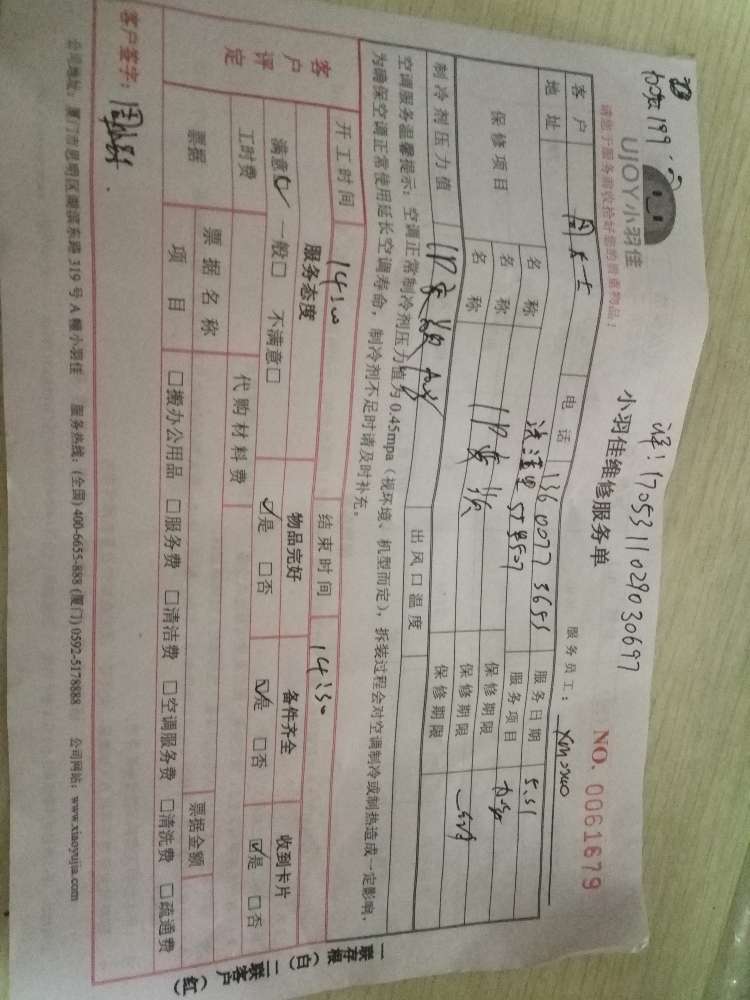 加收199.
译:170531102903 0697
UJOY小羽佳
小羽佳维修服务单
NO. 0061679
请您于服务前收拾好您的贵重物品!
服务员工:
客户 周女士 电话 13600773695 服务日期 5.31
地址 服务项目
保修项目 名称 保修期限
名称 保修期限
名称 保修期限
制冷剂压力值 出风口温度
空调服务温馨提示:空调正常制冷剂压力值为0.45mpa(视环境、机型而定),拆装过程会对空调制冷或制热造成一定影响,
为确保空调正常使用延长空调寿命,制冷剂不足时请及时补充。
开工时间 14:00 结束时间 14:30
客户评定
服务态度 物品完好 备件齐全 收到卡片
满意☑ 一般□ 不满意□ ☑是 □否 ☑是 □否 ☑是 □否
工时费 代购材料费
票据 票据名称 票据金额
项目 □搬办公用品 □服务费 □清洁费 □空调服务费 □清洗费 □疏通费
客户签字:
公司地址:厦门市思明区湖滨东路319号A幢小羽佳 服务热线:(全国)400-6655-888 (厦门)0592-5178888 公司网站:www.xiaoyujia.com
一联存根(白) 二联客户(红)